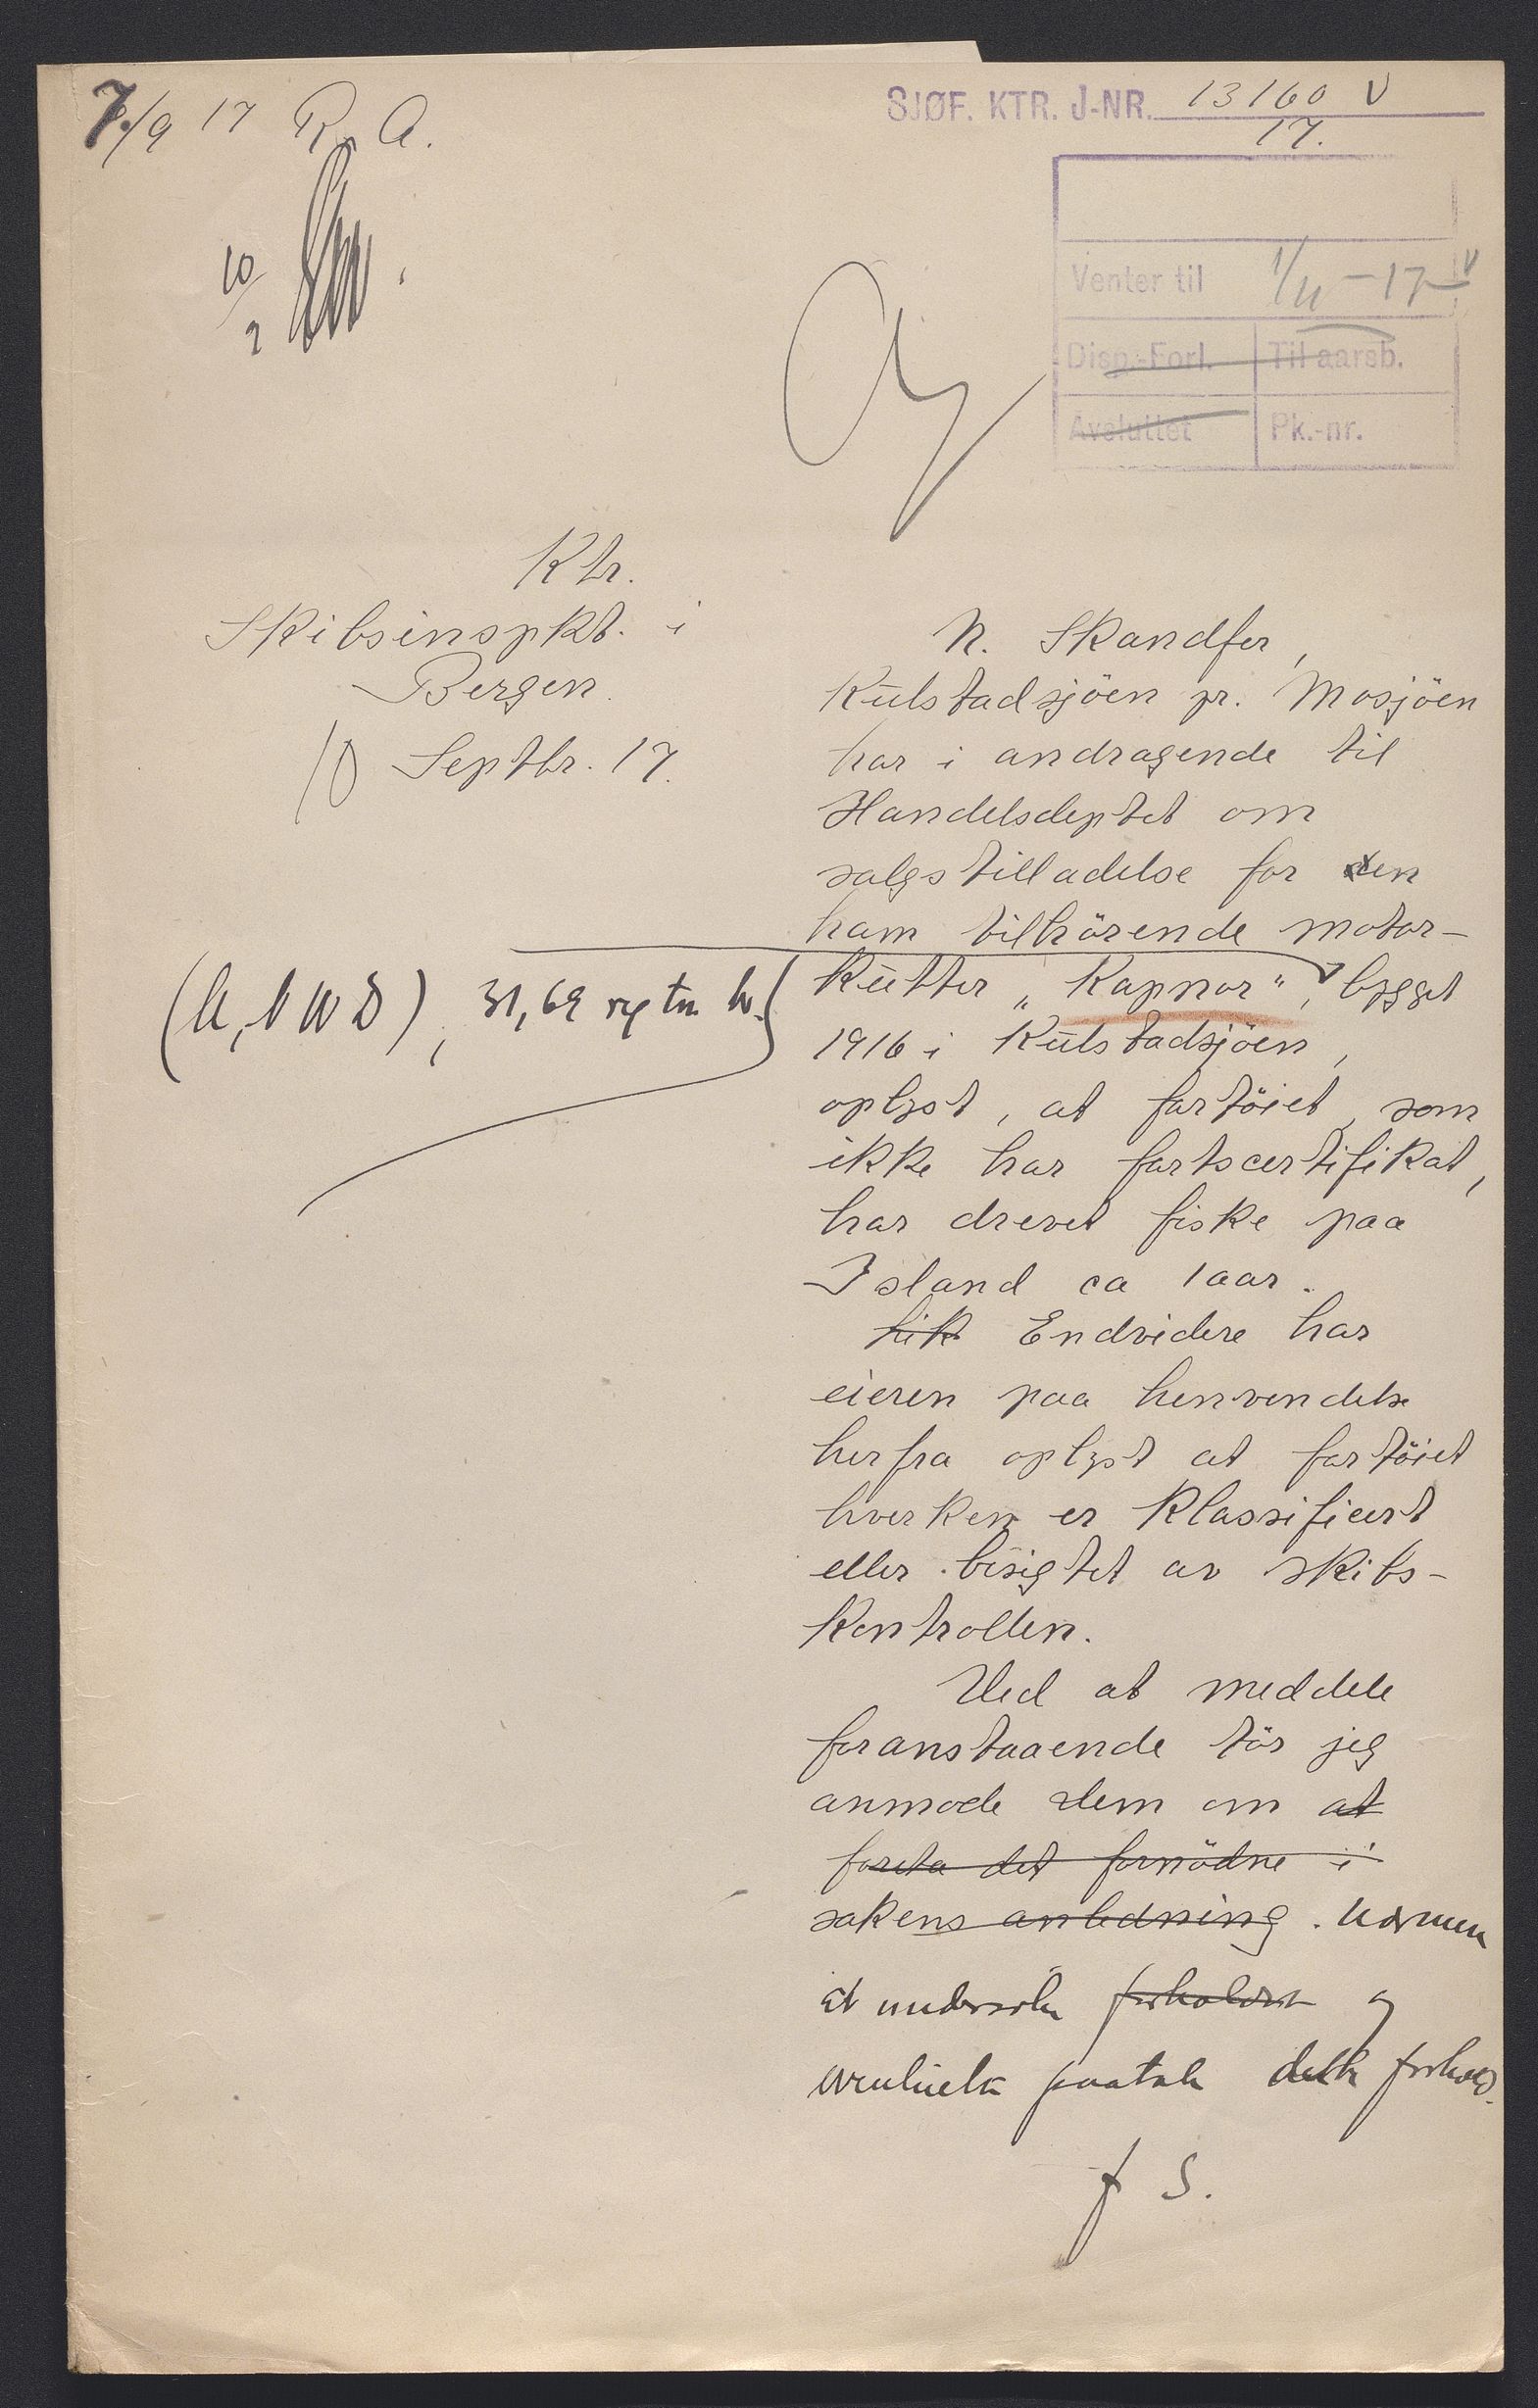 7./9 17 R. A.
SJØF. KTR. J-NR. 13160 V
17.
10/9
Venter til 1/11-17 V
Disp.-Forl. Til aarsb.
Avsluttet Pk.-nr.
Ktr.
Skibsinspkt. i
Bergen.
10 Septbr. 17.
N. Skandfer,
Kulstadsjöen pr. Mosjöen
har i andragende til
Handelsdeptet om
salgstilladelse for den
ham tilhörende motor-
kutter „Kapnor“, bygget
(M, N W D), 31,69 rg tn br.
1916 i Kulstadsjöen,
oplyst, at fartöiet, som
ikke har fartscertifikat,
har drevet fiske paa
Island ca 1 aar.
hik Endvidere har
eieren paa henvendelse
herfra oplyst at fartöiet
hverken er klassificert
eller besigtet av skibs-
kontrollen.
Ved at meddele
foranstaaende tör jeg
anmode dem om at
foreta det fornödne i
sakens anledning. nærmere
at undersöke forholdet og
eventuelt paatale dette forhold.
f S.